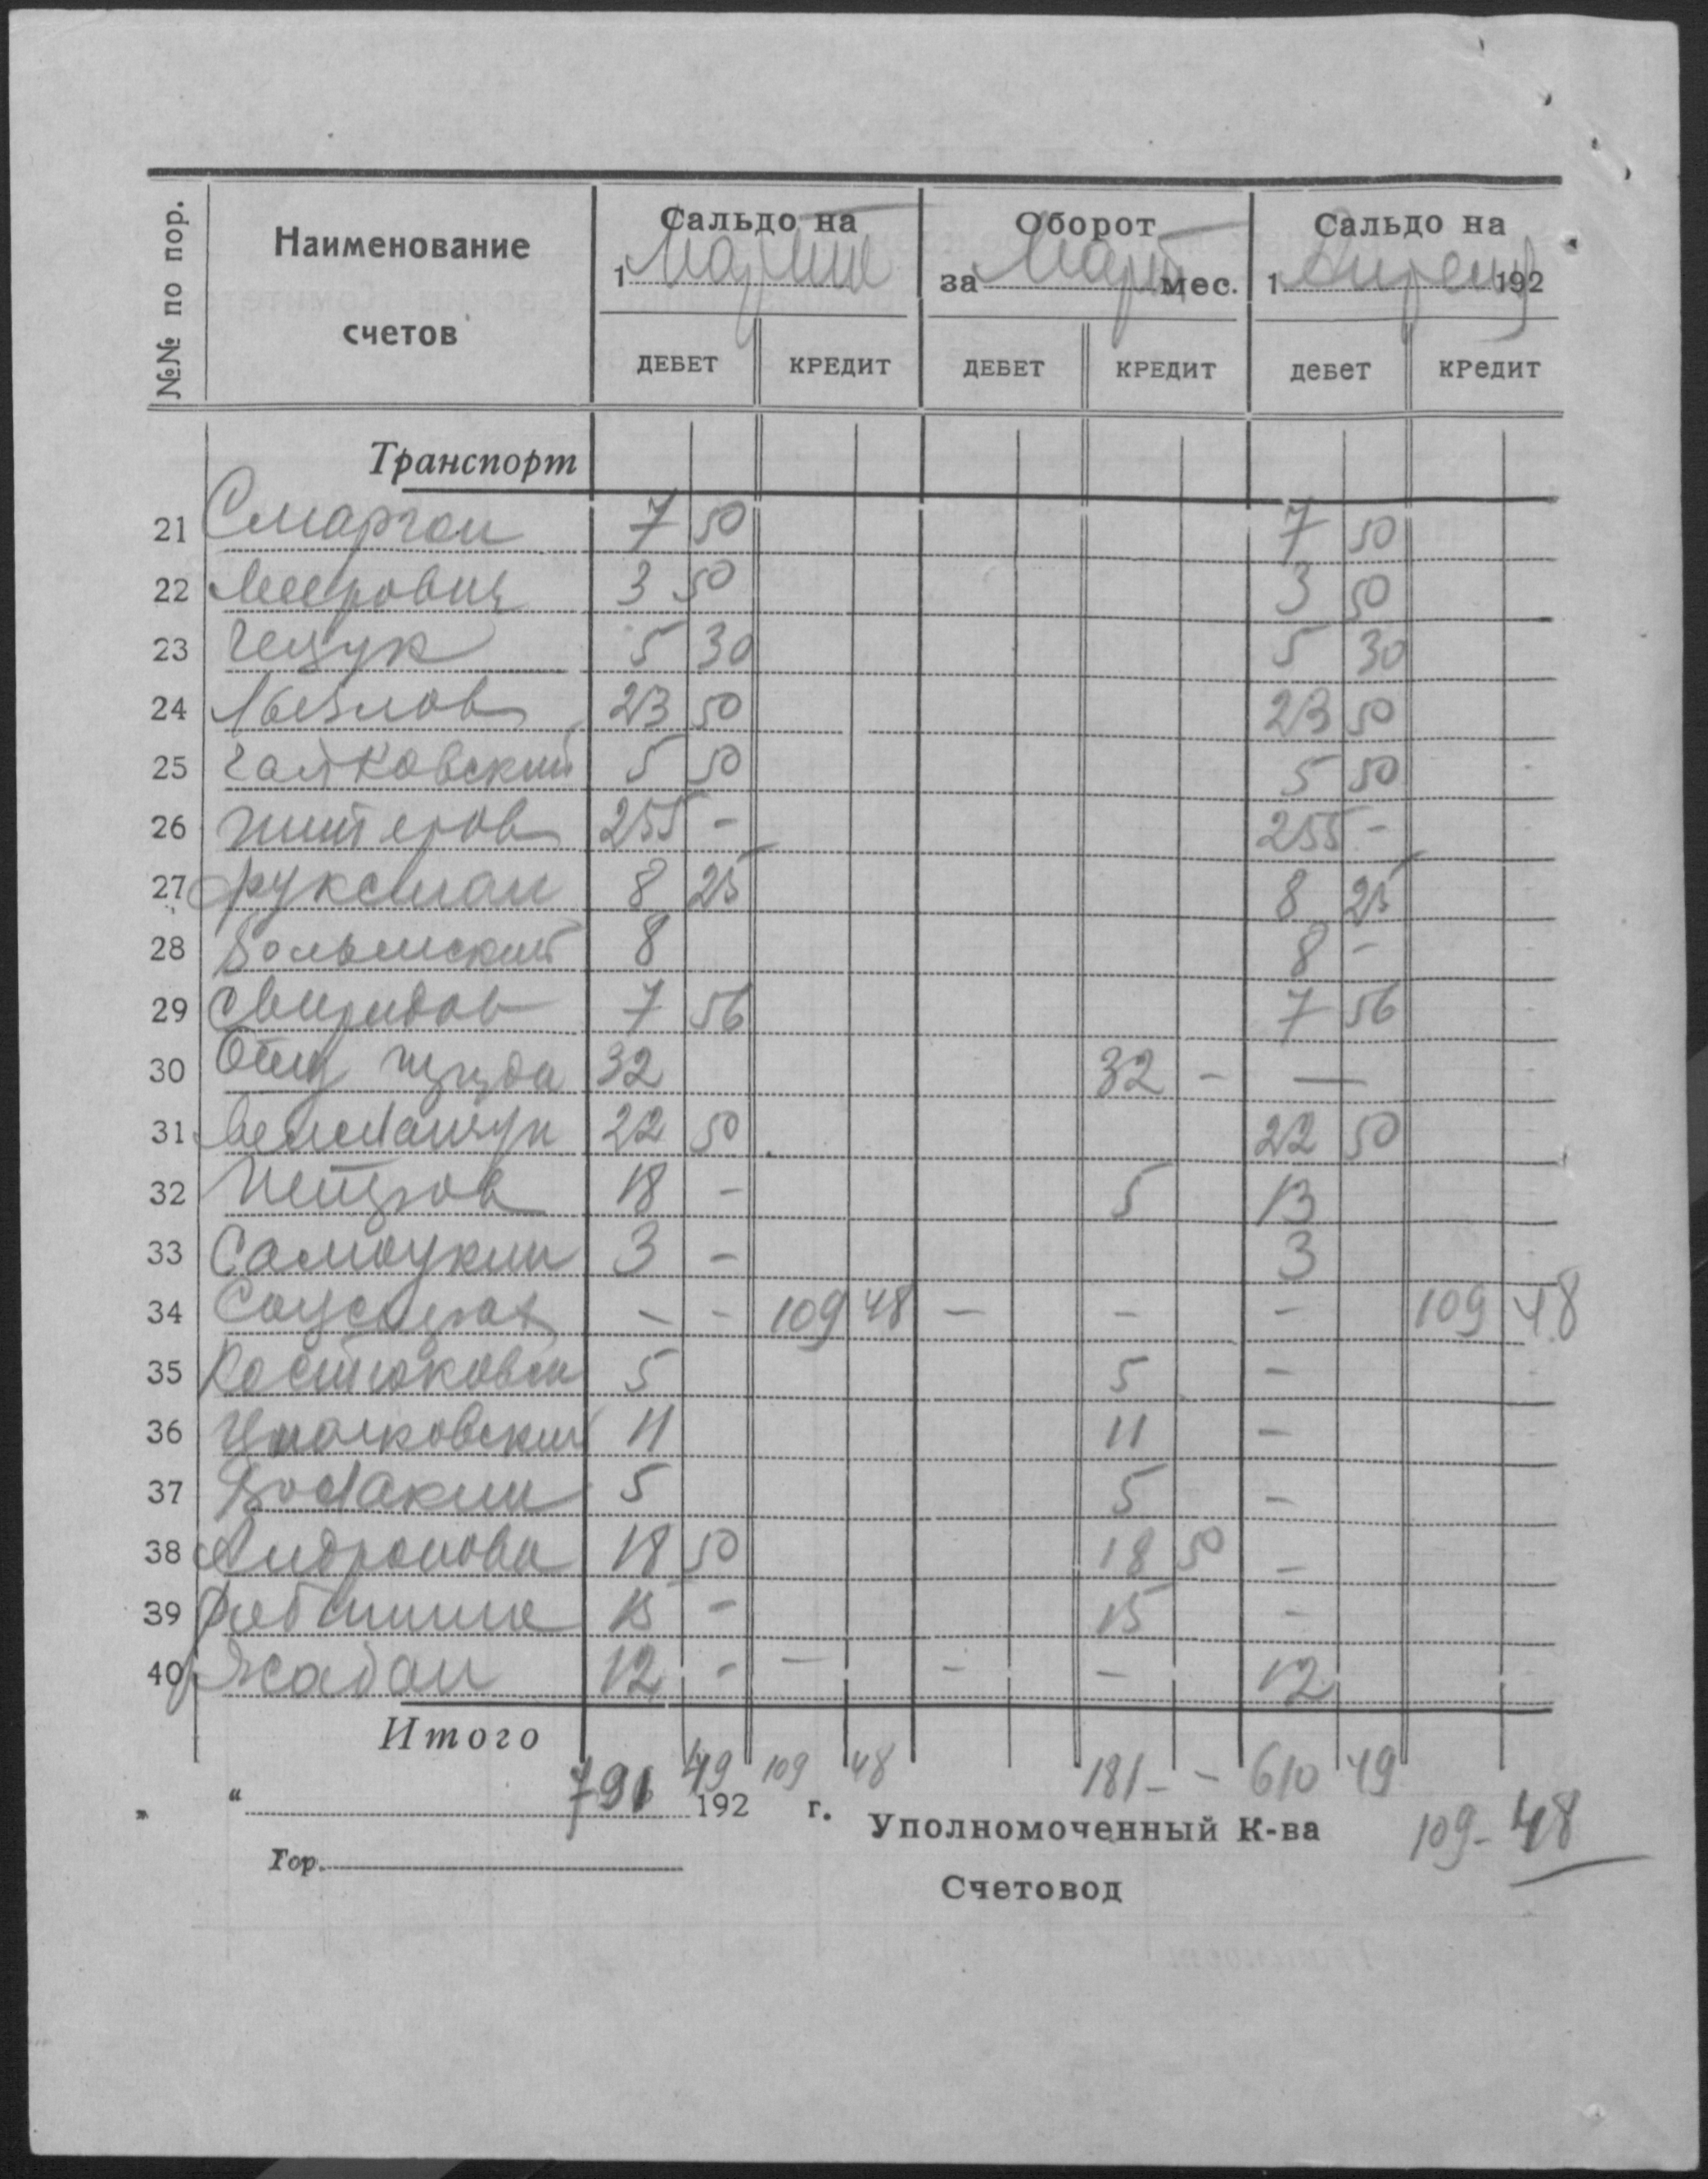 №№ по пор. Наименование счетов Сальдо на 1 Марта Оборот за Март мес. Сальдо на 1 Апреля 192
ДЕБЕТ КРЕДИТ ДЕБЕТ КРЕДИТ ДЕБЕТ КРЕДИТ
Транспорт
21 Сморгон 7 50 7 50
22 Меерович 3 50 3 50
23 5 30 5 30
24 23 50 23 50
25 Чайковский 5 50 5 50
26 255 - 255 -
27 Фуксман 8 25 8 25
28 Волынский 8 8 -
29 Свиридов 7 56 7 56
30 32 32 - —
31 22 50 22 50
32 Петров 18 - 5 13
33 Самоукин 3 - 3
34 Соцстрах - - 109 48 - - - 109 48
35 5 5 -
36 11 11 -
37 5 5 -
38 Андронова 18 50 18 50 -
39 15 - 15 -
40 Жадан 12 - - - - 12
Итого
791 49 109 48 181 - - 610 49
" 192 г. Уполномоченный К-ва 109 - 48
Гор.
Счетовод